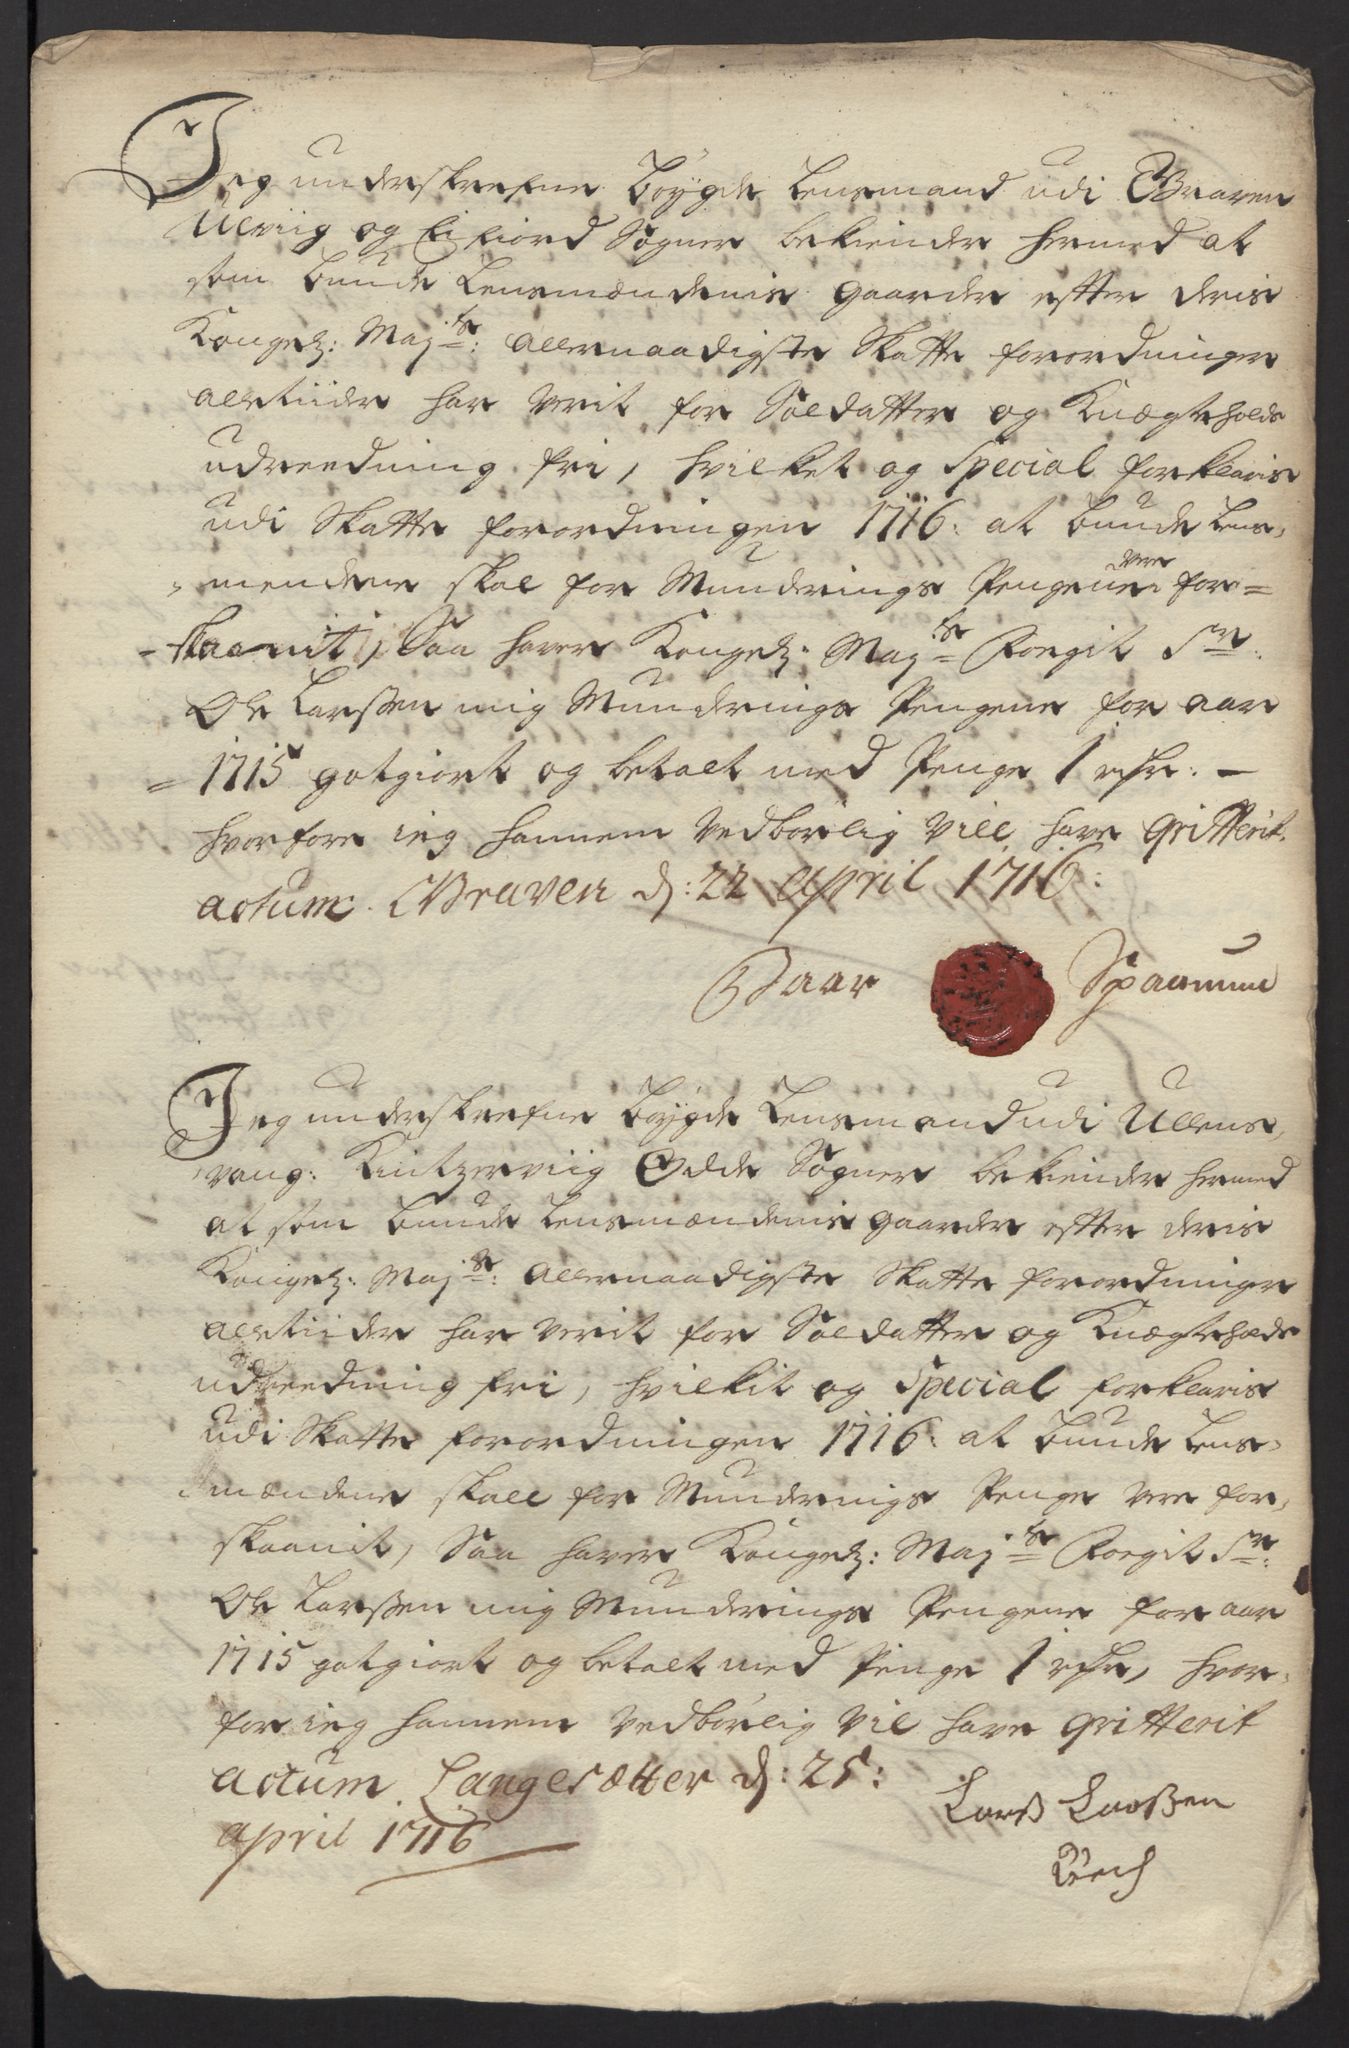 Jeg underskrefne bøygde Lensmand udi Graven
Ulviig og Eifiord Sogner bekiender hermed at
som bunde Lensmændenis gaarder efter deris
Kongel: Maj:ts allernaadigste Skatte forordninger
alletiider har verit for Soldatter og Knægteholds
udreedning fri, hvilket og Special forklaris
udi Skatte forordningen 1716: at bunde Lens,
mendene skal for Munderings Pengene vere for=
skaanit, Saa haver Kongel: Maj:ts Foegit Sr:
Ole Larssen mig Munderings Pengene for aar
1715 gotgiort og betalt med Penge 1 rdr: -
hvorfore ieg hannem vedbørlig vill have qvitterit.
actum. Graven d: 22 April 1716:
Baar Spaanum
Jeg underskrefne bøygde Lensmand udi Ullens,
vang: Kintzerviig Odde Sogner bekiender hermed
at som bunde Lensmændenis gaarder efter deris
Kongel: Maj:ts: allernaadigste Skatte forordninger
alletiider har verit for Soldatter og Knægteholds
udreedning fri, hvilkit og Special forklaris
udi Skatte forordningen 1716: at bunde Lens,
mændene skall for Munderings Penge vere for,
skaanit, Saa haver Kongel: Maj:ts Foegit Sr:
Ole Larssen mig Munderings Pengene for aar
1715 gotgiort og betalt med Penge 1 rdr, hvor,
for ieg hannem vedbørlig vil have qvitterit
actum. Langesætter d: 25:
april 1716
Larss Larssen